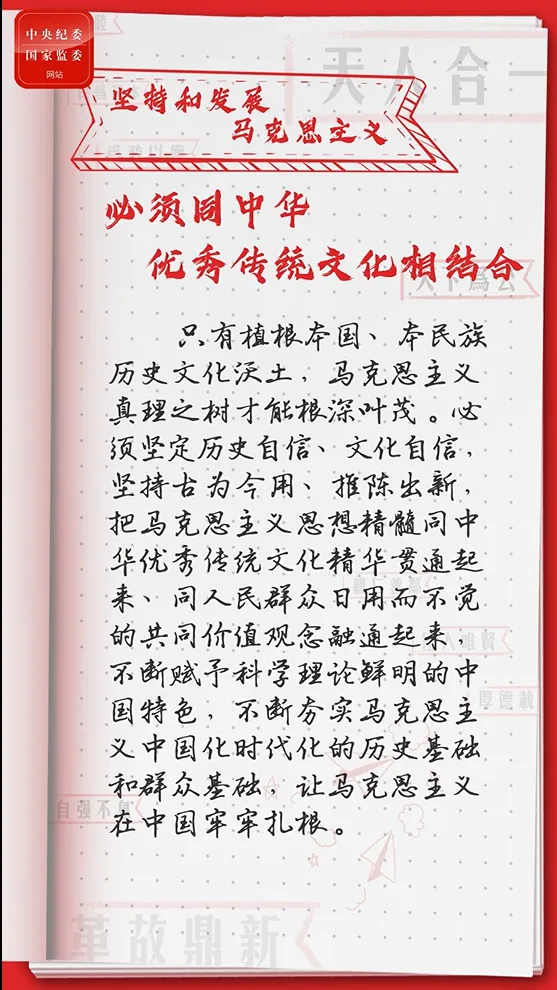 中央纪委
国家监委
网站
天人合一
坚持和发展
马克思主义
必须同中华
优秀传统文化相结合
天下為公
只有植根本国、本民族
历史文化沃土，马克思主义
真理之树才能根深叶茂。必
须坚定历史自信、文化自信，
坚持古为今用、推陈出新，
把马克思主义思想精髓同中
华优秀传统文化精华贯通起
来、同人民群众日用而不觉
的共同价值观念融通起来，
不断赋予科学理论鲜明的中
国特色，不断夯实马克思主
义中国化时代化的历史基础
和群众基础，让马克思主义
在中国牢牢扎根。
厚德載
自强不息
革故鼎新